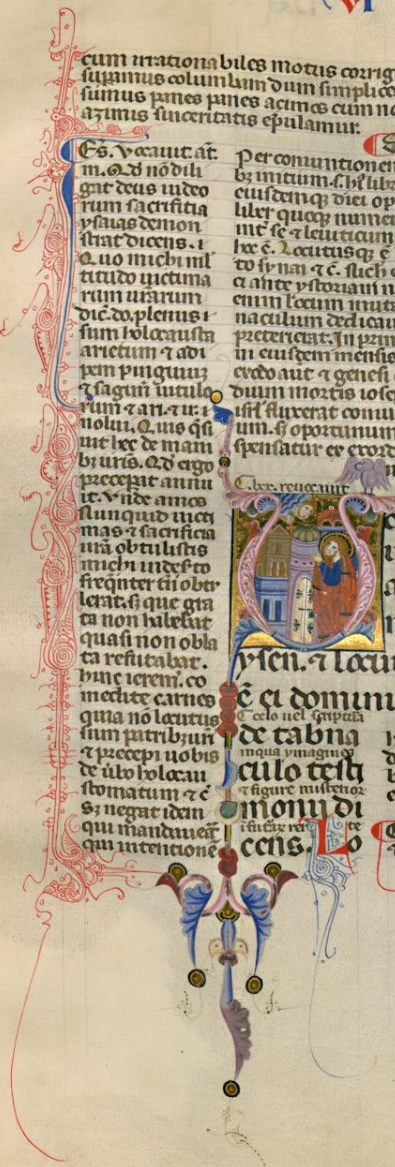 cum irrationabiles motus corrig
supamus columbam dum simplic
sumus panes panes acimos cum no
azimis sinceritatis epulamur.
Es. vocauit. at.
m. Qd nō dili
gat deus iudeo
rum sacrificia
ysaias demon
strat dicens. i
Quo michi mul
titudo uictima
rum urarum
dic̄. do. plenus i
sum holocausta
arietum ⁊ adi
pem pinguiuz
⁊ sagim uitulo
rum ⁊ ari. ⁊ ir. i
nolui. Quis q̄si
uit hec de mani
bz uris. Qd ergo
preceperat annu
it. vnde amos
Nunquid uicti
mas ⁊ sacrificia
urā obtulistis
michi in desto
freqnter tii obtu
lerat. sz que gra
ta non habebat
quasi non obla
ta refutabat.
hinc ierem. co
medite carnes
quia nō locutus
sum patribz uris
⁊ precepi uobis
de ubo holocau
stomatum ⁊ c̄
sz negat idem
qui mandauerat
qui intentionē
Per coniunctionem
bz initium. s. hi libr
eiusdemqz diei op
liber quoqz numer
int se ⁊ leuiticum
hec ē. Locutusqz ē
to synai ⁊ c̄. sicut
ci ante ystoriam
enim locum muta
naculum dedicau
preterierat. In prim
in eiusdem mensis
exodo aut ⁊ genesi
duum mortis iosep
isrl fluxerat
um. sz oportunum
spensatur ex exord
C. ber. reuocauit
ysen. ⁊ locu
ē ei domin
C celo uel scriptura
de tabna
in qua ymagines
culo testi
⁊ figure misterior
monii di
cens. Lo